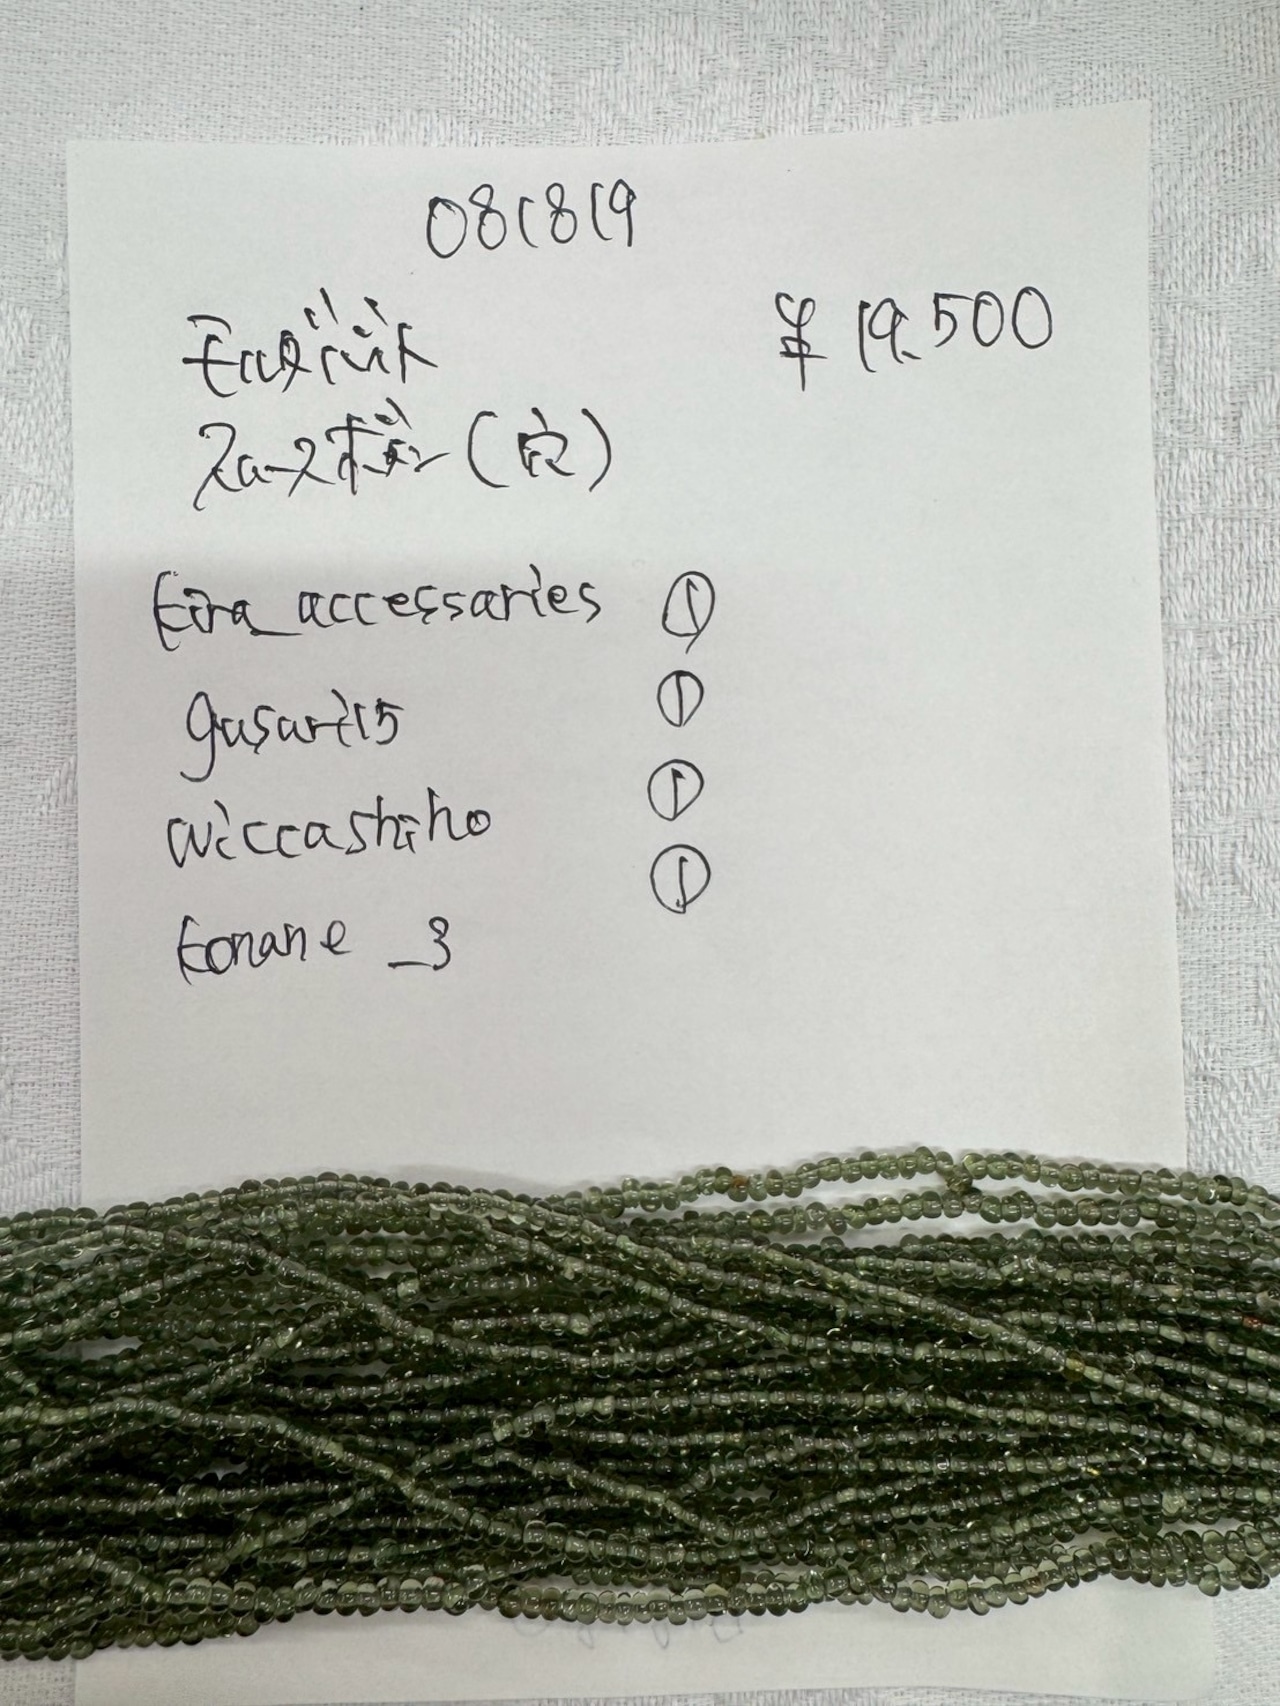 081819
モルダバイト ¥19.500
スムース極 (穴)
kira_accessaries ①
gusart15 ①
wiccashiho ①
konane_3 ①